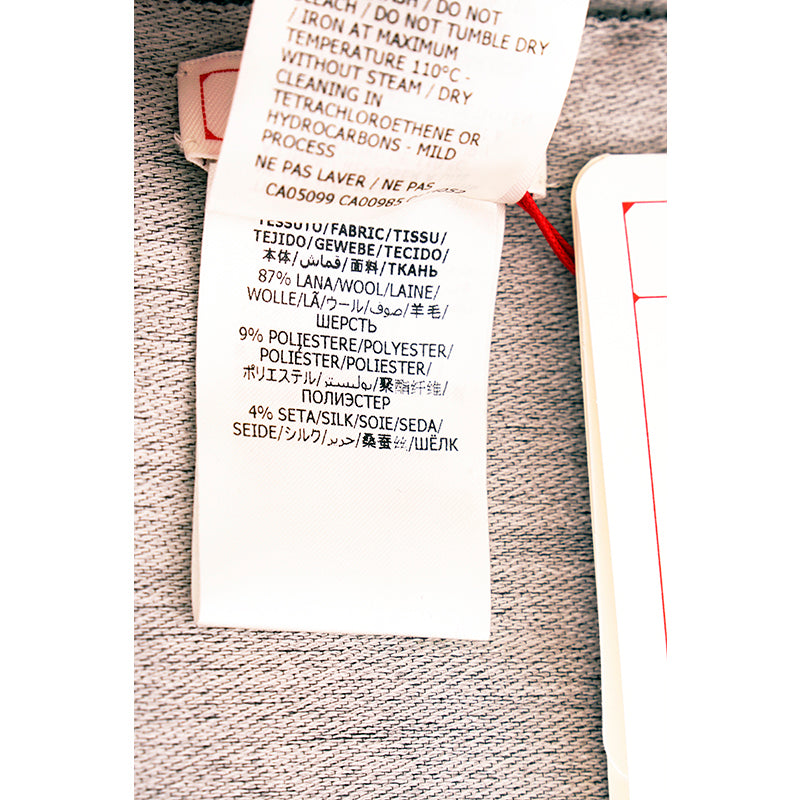 WASH / DO NOT
BLEACH / DO NOT TUMBLE DRY
/ IRON AT MAXIMUM
TEMPERATURE 110°C -
WITHOUT STEAM / DRY
CLEANING IN
TETRACHLOROETHENE OR
HYDROCARBONS - MILD
PROCESS
NE PAS LAVER / NE PAS
CA05099 CA00985
TESSUTO/FABRIC/TISSU/
TEJIDO/GEWEBE/TECIDO/
本体/قماش/面料/ТКАНЬ
87% LANA/WOOL/LAINE/
WOLLE/LÃ/ウール/صوف/羊毛/
ШЕРСТЬ
9% POLIESTERE/POLYESTER/
POLIÉSTER/POLIESTER/
ポリエステル/بوليستر/聚酯纤维/
ПОЛИЭСТЕР
4% SETA/SILK/SOIE/SEDA/
SEIDE/シルク/حرير/桑蚕丝/ШЁЛК